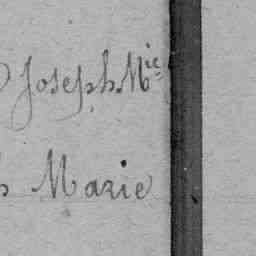 Joseph Mie
Marie